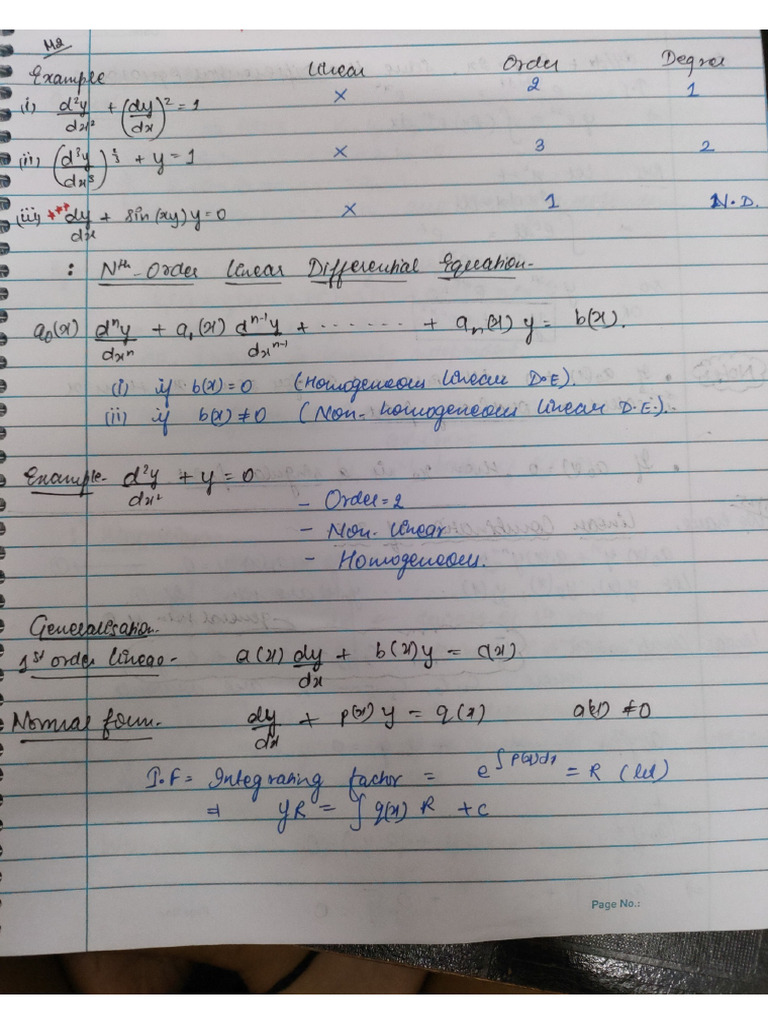 M2
Example Linear Order Degree
(i) d²y/dx² + (dy/dx)² = 1 × 2 1
(ii) (d³y/dx³)^(2/3) + y = 1 × 3 2
(iii) *** dy/dx + sin(xy)y = 0 × 1 N.D.
: Nth-Order Linear Differential Equation-
a₀(x) dⁿy/dxⁿ + a₁(x) dⁿ⁻¹y/dxⁿ⁻¹ + ...... + aₙ(x) y = b(x).
(i) if b(x) = 0 (Homogeneous Linear D.E).
(ii) if b(x) ≠ 0 (Non-homogeneous Linear D.E.).
Example- d²y/dx² + y = 0
- Order = 2
- Non-Linear
- Homogeneous.
Generalisation-
1st order linear- a(x) dy/dx + b(x) y = c(x)
Normal form- dy/dx + p(x) y = q(x) a(x) ≠ 0
I.F = Integrating factor = e^∫p(x)dx = R (let)
⇒ yR = ∫q(x) R + c
Page No.: